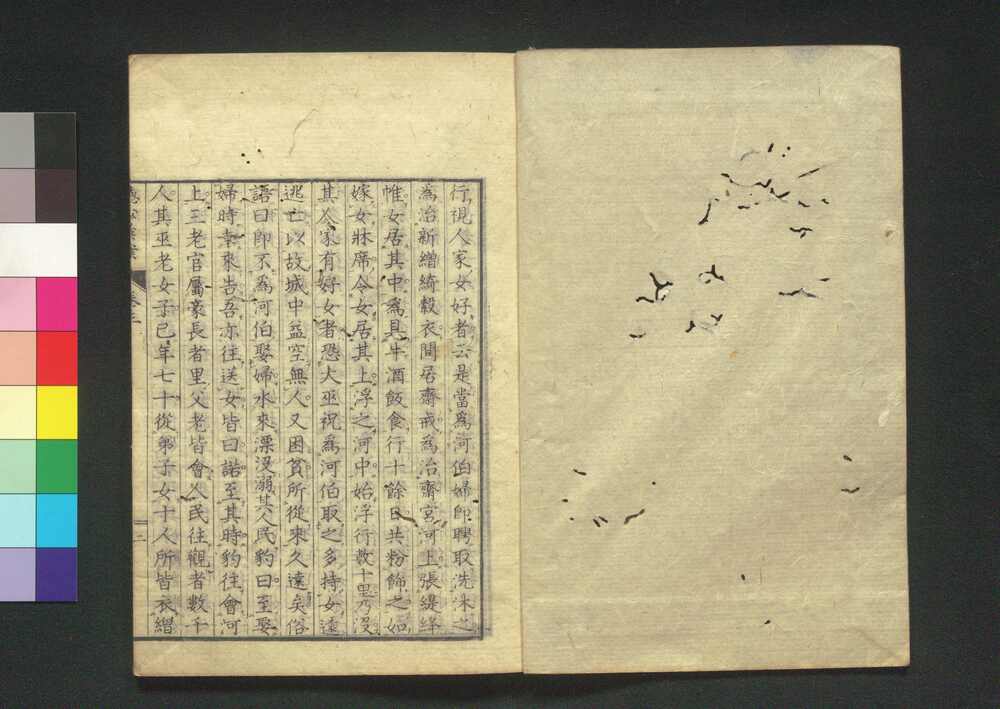 行視人家女好者云是當爲河伯婦即聘取洗沐之
爲治新繒綺縠衣間居齋戒爲治齋宮河上張緹絳
帷女居其中爲具牛酒飯食行十餘日共粉飾之如
嫁女牀席令女居其上浮之河中始浮行數十里乃沒
其人家有好女者恐大巫祝爲河伯取之多持女遠
逃亡以故城中益空無人又困貧所從來久遠矣俗
語曰即不爲河伯娶婦水來漂沒溺其人民豹曰至娶
婦時幸來告吾亦往送女皆曰諾至其時豹往會河
上三老官屬豪長者里父老皆會人民往觀者數千
人其巫老女子已年七十從弟子女十人所皆衣繒
卷三
二